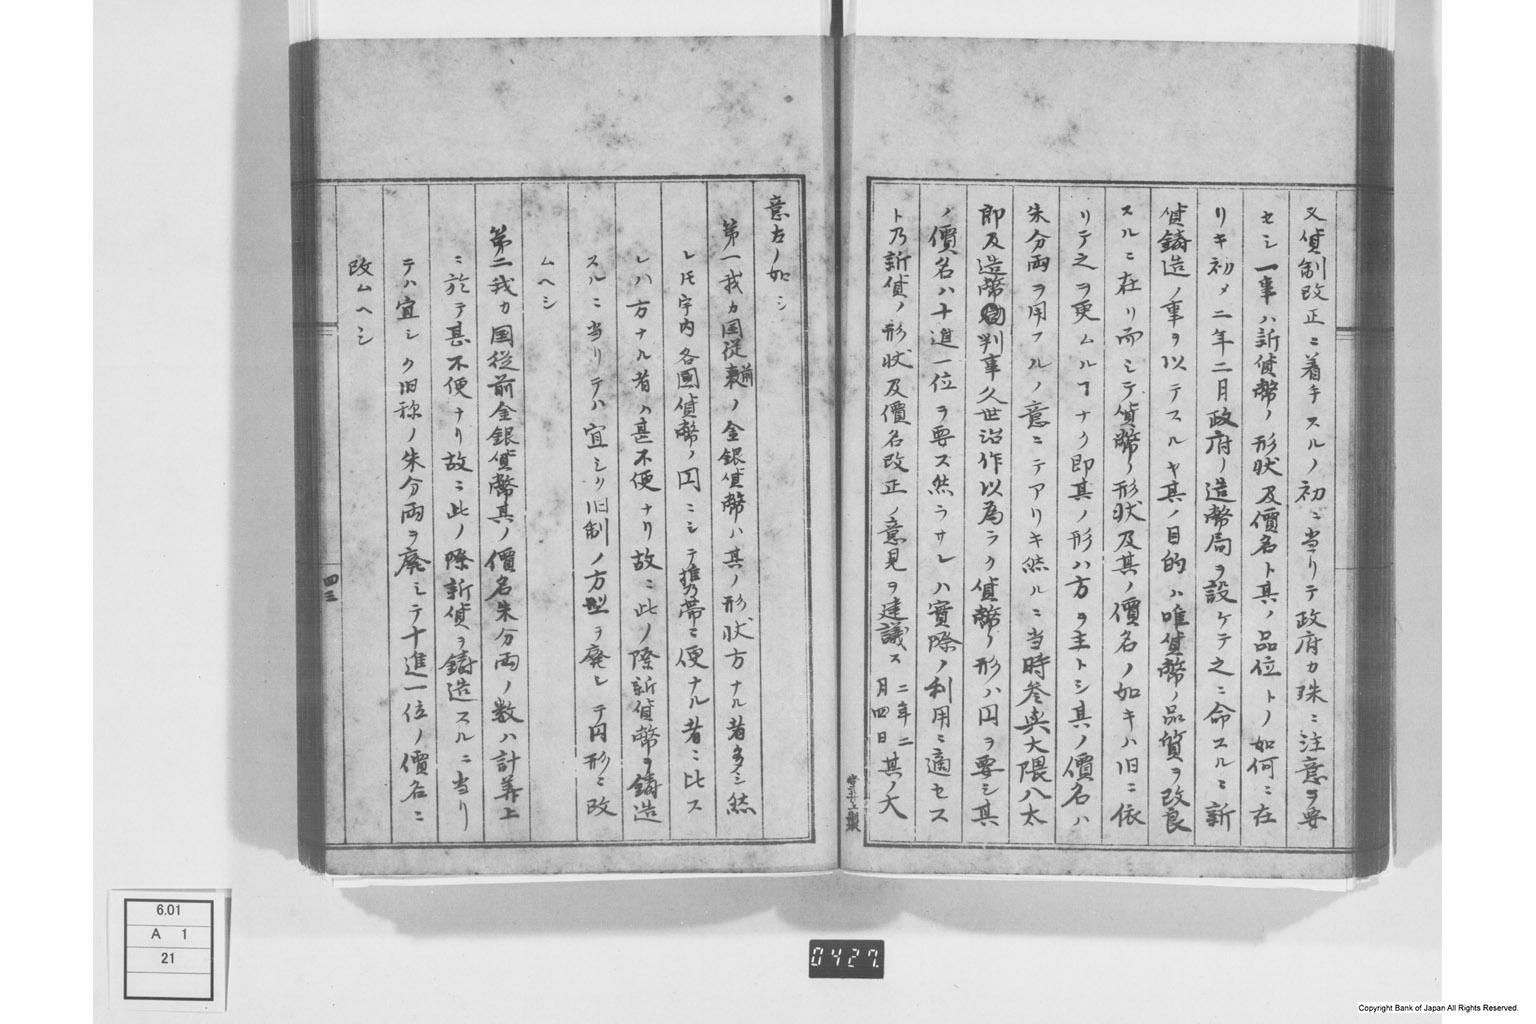 又貨制改正ニ着手スルノ初ニ当リテ政府カ殊ニ注意ヲ要
セシ一事ハ新貨幣ノ形状及價名ト其ノ品位トノ如何ニ在
リキ初メ二年二月政府ノ造幣局ヲ設ケテ之ニ命スルニ新
貨鋳造ノ事ヲ以テスルヤ其ノ目的ハ唯貨幣ノ品質ヲ改良
スルニ在リ而シテ貨幣ノ形状及其ノ價名ノ如キハ旧ニ依
リテ之ヲ更ムルヿナク即其ノ形ハ方ヲ主トシ其ノ價名ハ
朱分両ヲ用フルノ意ニテアリキ然ルニ当時参與大隈八太
郎及造幣局判事久世治作以為ラク貨幣ノ形ハ円ヲ要シ其
ノ價名ハ十進一位ヲ要ス然ラサレハ實際ノ利用ニ適セス
ト乃新貨ノ形状及價名改正ノ意見ヲ建議ス二年三月四日其ノ大
意左ノ如シ
第一我カ国従前ノ金銀貨幣ハ其ノ形状方ナル者多シ然
レ圧宇内各國貨幣ノ円ニシテ携帯ニ便ナル者ニ比ス
レハ方ナル者ハ甚不便ナリ故ニ此ノ際新貨幣ヲ鋳造
スルニ当リテハ宜シク旧制ノ方型ヲ廃シテ円形ニ改
ムヘシ
第二我カ国従前金銀貨幣其ノ價名朱分両ノ数ハ計算上
ニ於テ甚不便ナリ故ニ此ノ際新貨ヲ鋳造スルニ当リ
テハ宜シク旧称ノ朱分両ヲ廃シテ十進一位ノ價名ニ
改ムヘシ
四三
6.01
A 1
21
0427
Copyright Bank of Japan All Rights Reserved.